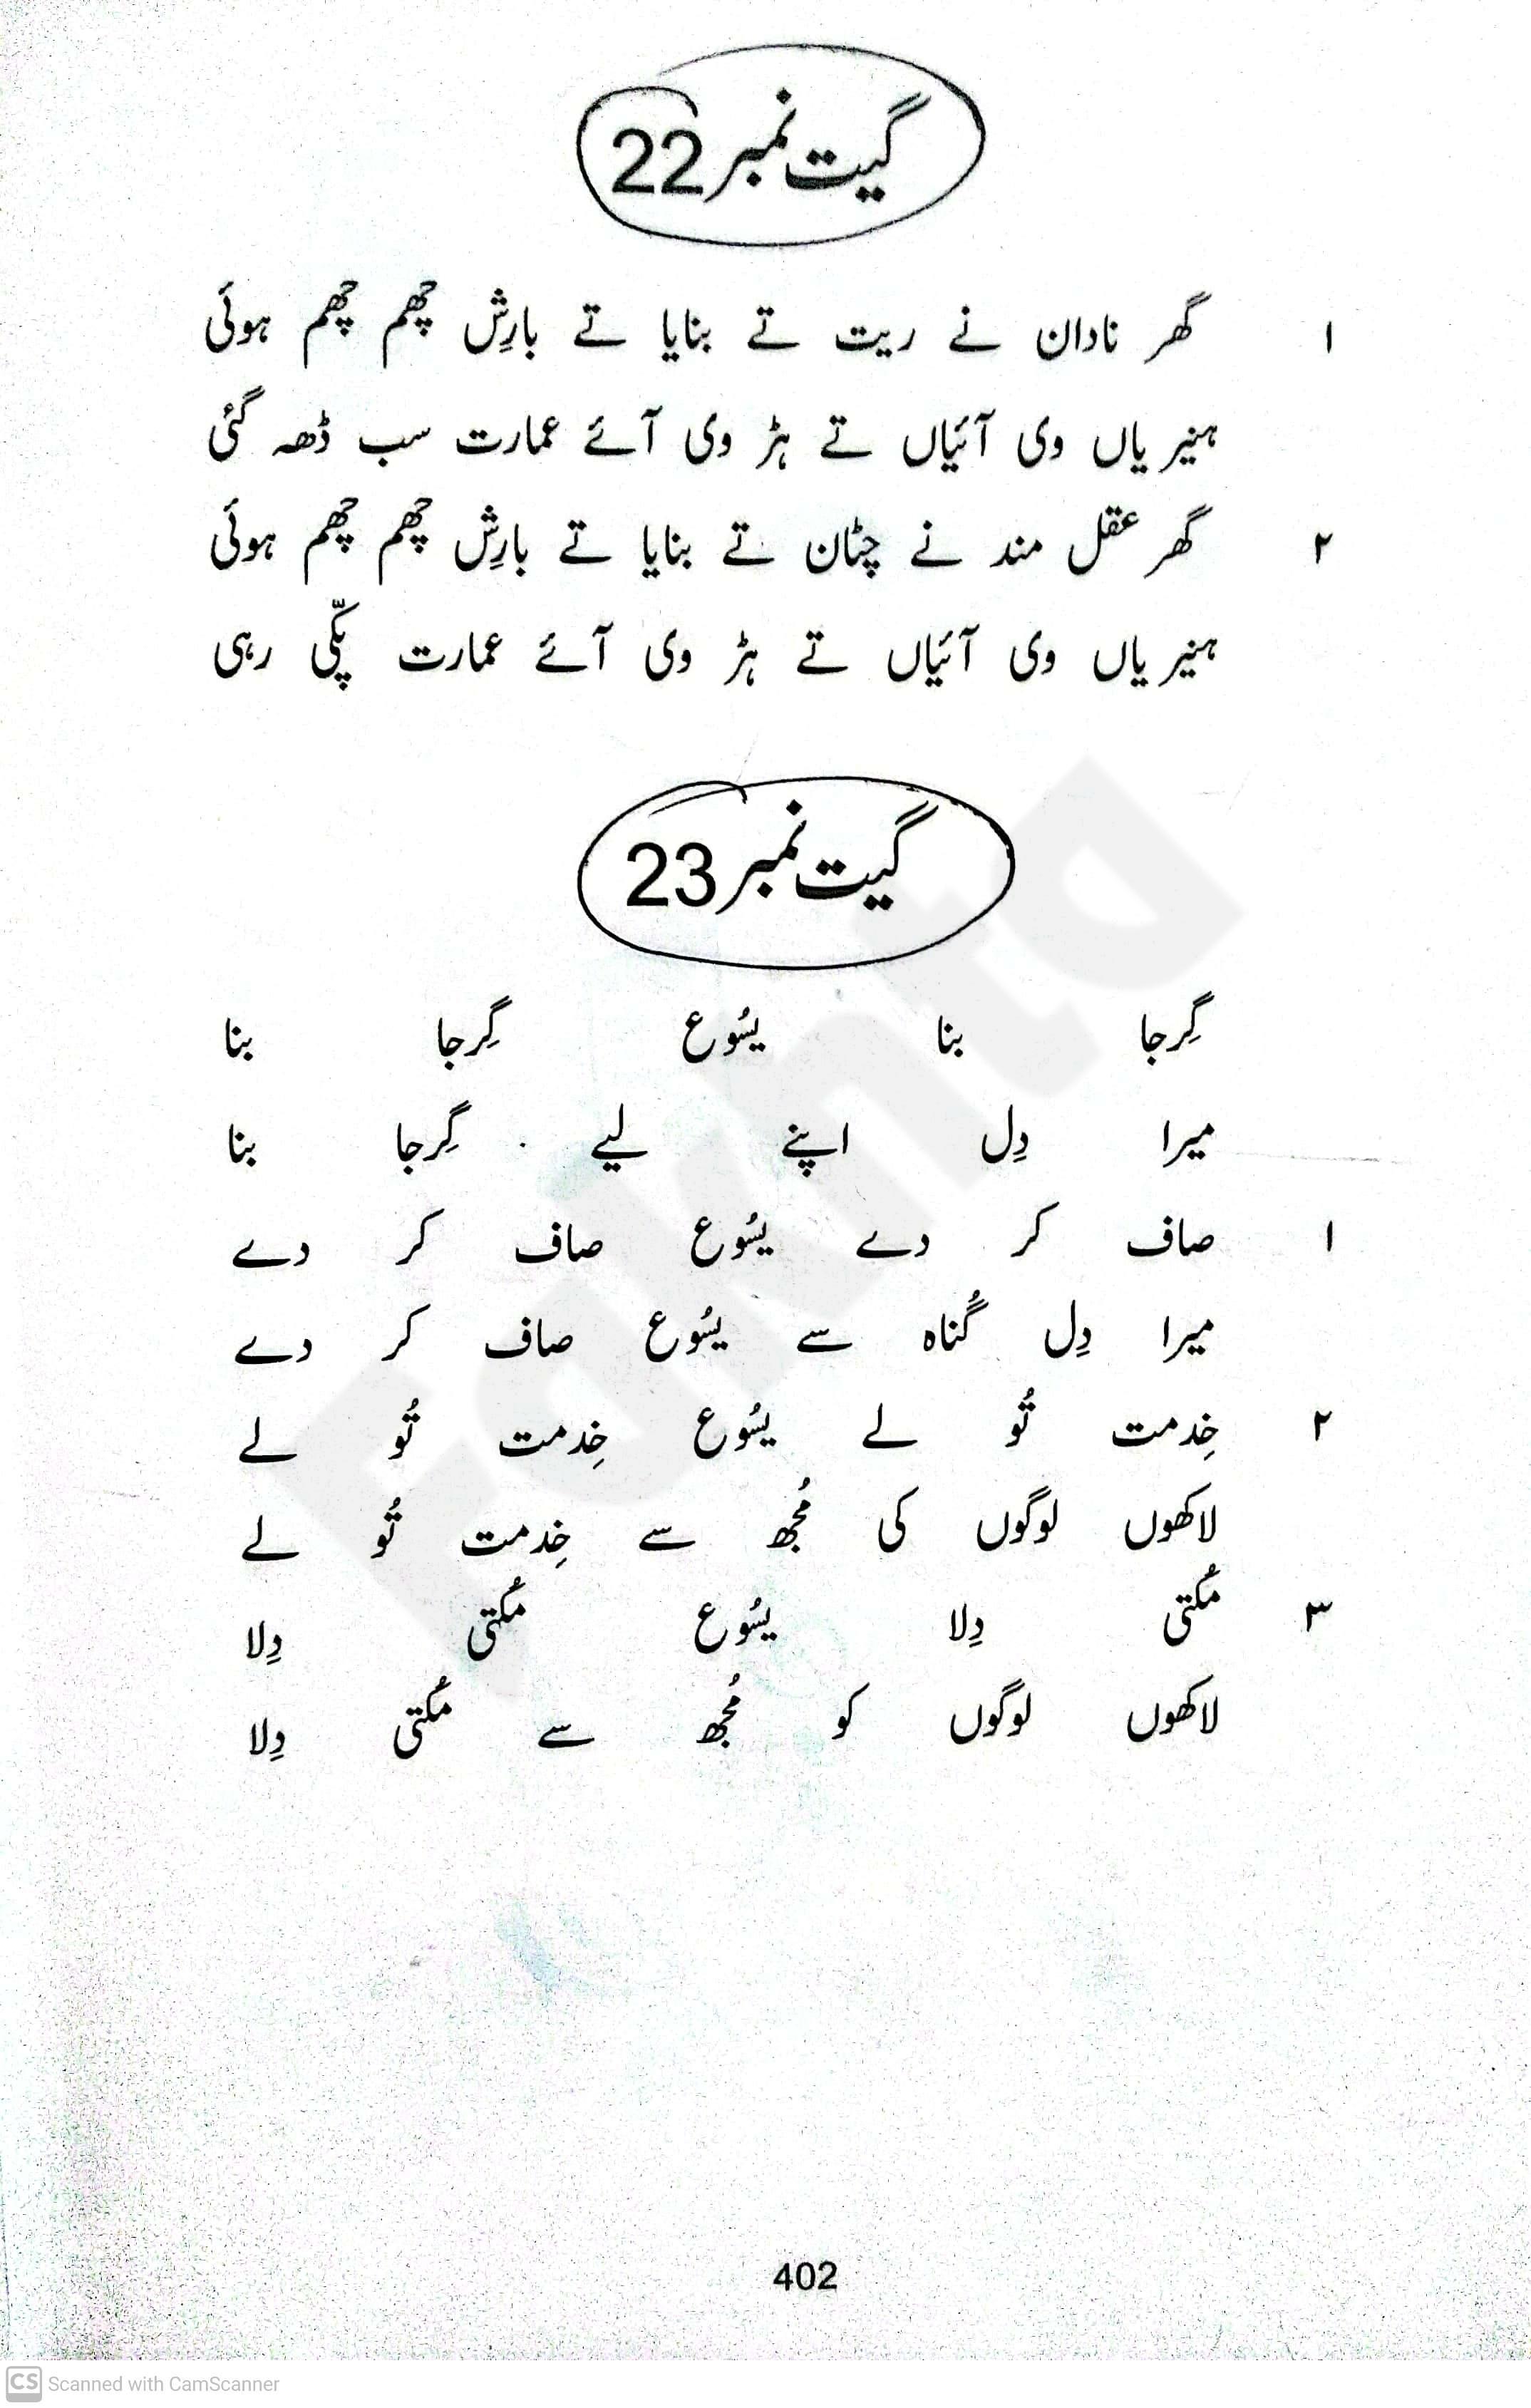 گیت نمبر 22
۱ گھر نادان نے ریت تے بنایا تے بارِش چھم چھم ہوئی
ہنیر یاں وی آئیاں تے ہڑ وی آئے عمارت سب ڈھہ گئی
۲ گھر عقل مند نے چٹان تے بنایا تے بارِش چھم چھم ہوئی
ہنیر یاں وی آئیاں تے ہڑ وی آئے عمارت پکّی رہی
گیت نمبر 23
گِرجا بنا یسُوع گِرجا بنا
میرا دِل اپنے لیے گِرجا بنا
۱ صاف کر دے یسُوع صاف کر دے
میرا دِل گُناہ سے یسُوع صاف کر دے
۲ خِدمت تُو لے یسُوع خِدمت تُو لے
لاکھوں لوگوں کی مُجھ سے خِدمت تُو لے
۳ مُکتی دِلا یسُوع مُکتی دِلا
لاکھوں لوگوں کو مُجھ سے مُکتی دِلا
402
Fakhta
CS Scanned with CamScanner